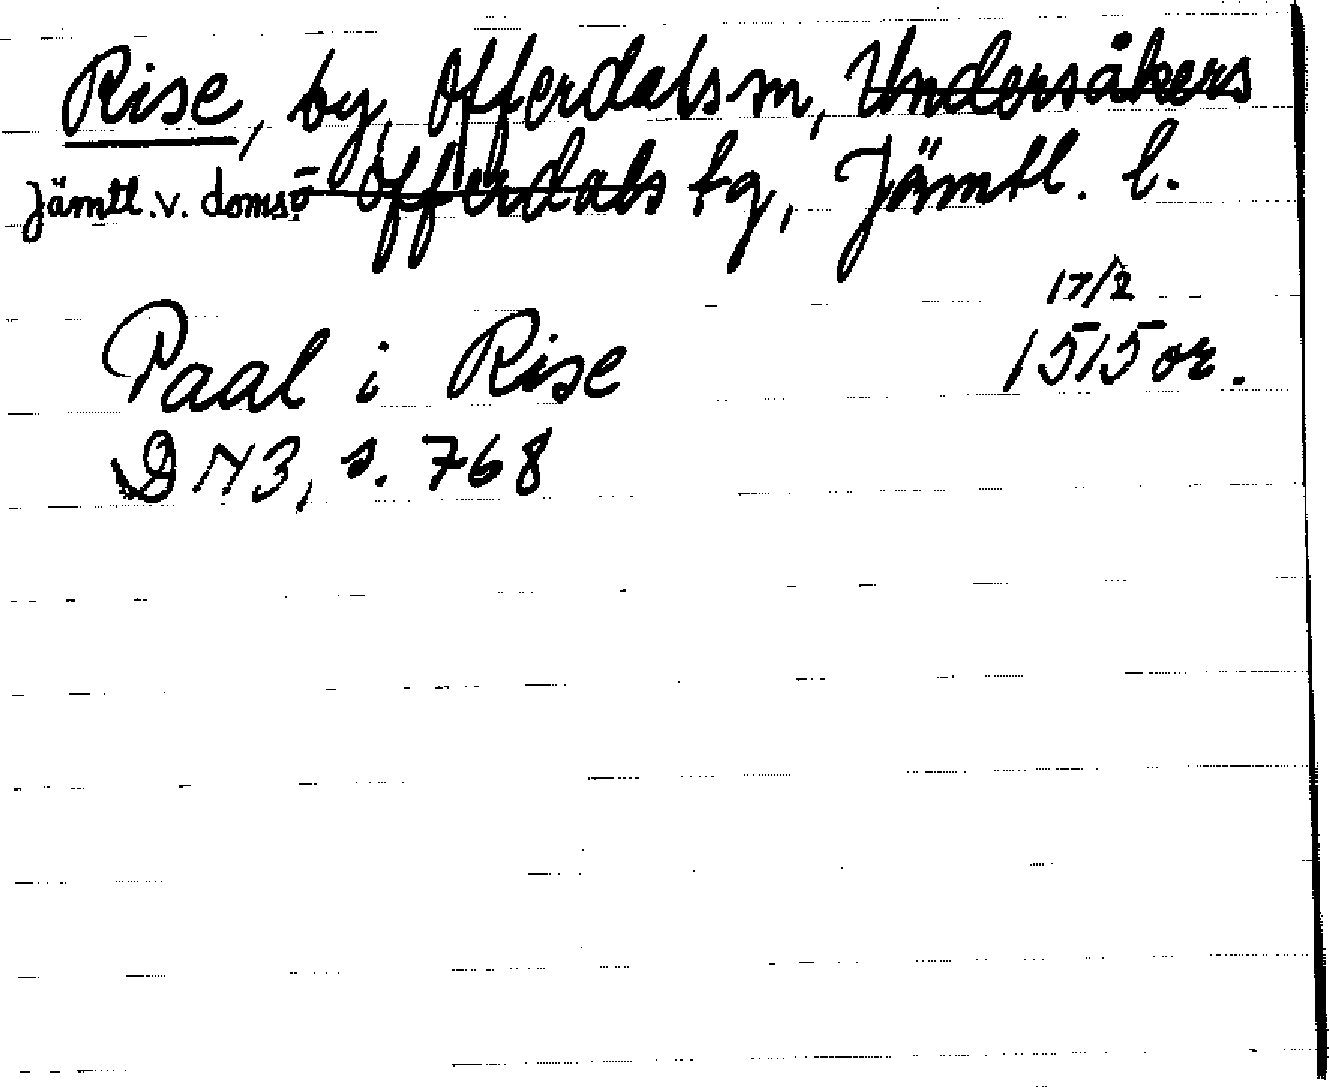 Rise, by, Offerdals sn, Undersåkers
Jämtl. v. doms. o Offerdals tg, Jämtl. l.
17/2
Paal i Rise 1515 or.
DN 3, s. 768